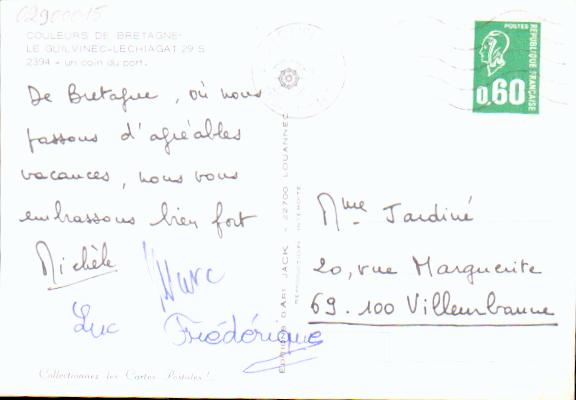 02900015
COULEURS DE BRETAGNE
LE GUILVINEC-LECHIAGAT 29 S
2394 - un coin du port.
De Bretagne, où nous
passons d'agréables
vacances, nous vous
embrassons bien fort
Michèle
Marc
Luc
Frédérique
Collectionnez les Cartes Postales !
EDITIONS D'ART JACK - 22700 LOUANNEC
REPRODUCTION INTERDITE
POSTES
REPUBLIQUE FRANÇAISE
0,60
Mme Jardiné
20, rue Marguerite
69.100 Villeurbanne